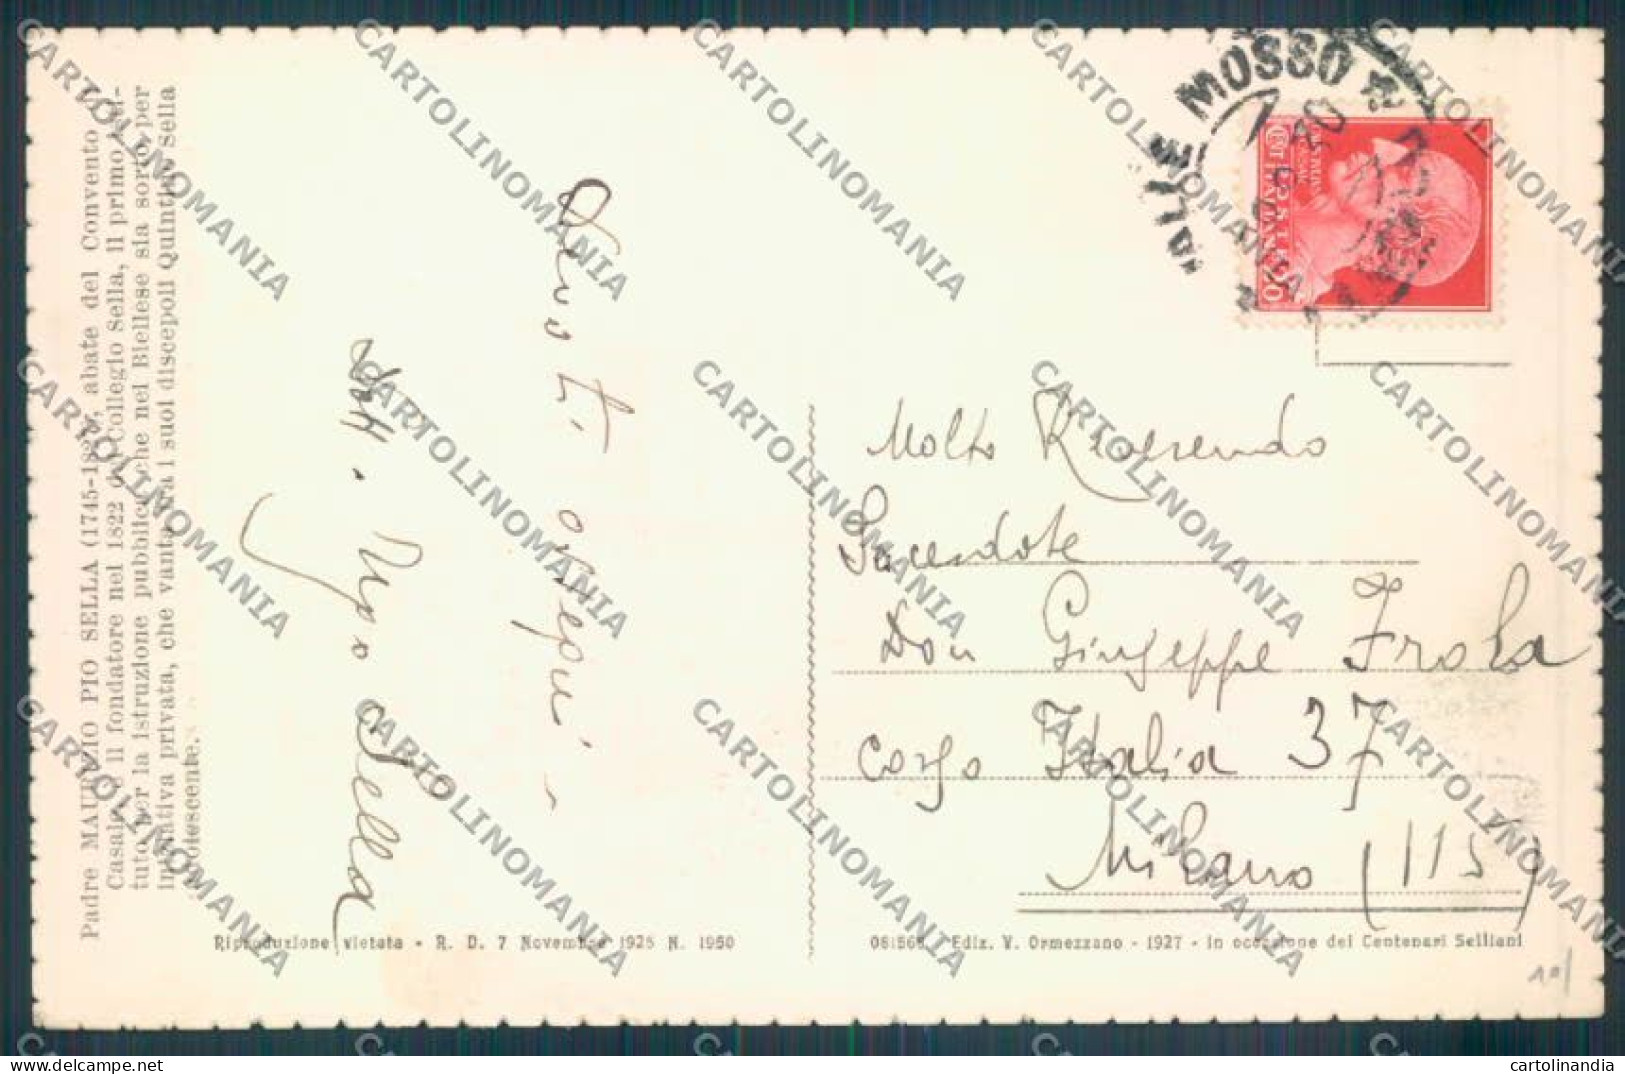 Padre MAURIZIO PIO SELLA (1745-1827, abate del Convento di
Casale il fondatore nel 1822 del Collegio Sella, il primo isti-
tuto per la istruzione pubblica che nel Biellese sia sorto per
iniziativa privata, che vanta fra i suoi discepoli Quintino Sella
adolescente.
Devoti ossequi -
Ugo Sella
VALLE MOSSO
POSTE ITALIANE
Molto Reverendo
Sacerdote
Don Giuseppe Frola
Corso Italia 37
Milano (115)
Riproduzione vietata - R. D. 7 Novembre 1925 N. 1950
Ediz. V. Ormezzano - 1927 - in occasione dei Centenari Selliani
CARTOLINOMANIA
cartolinandia